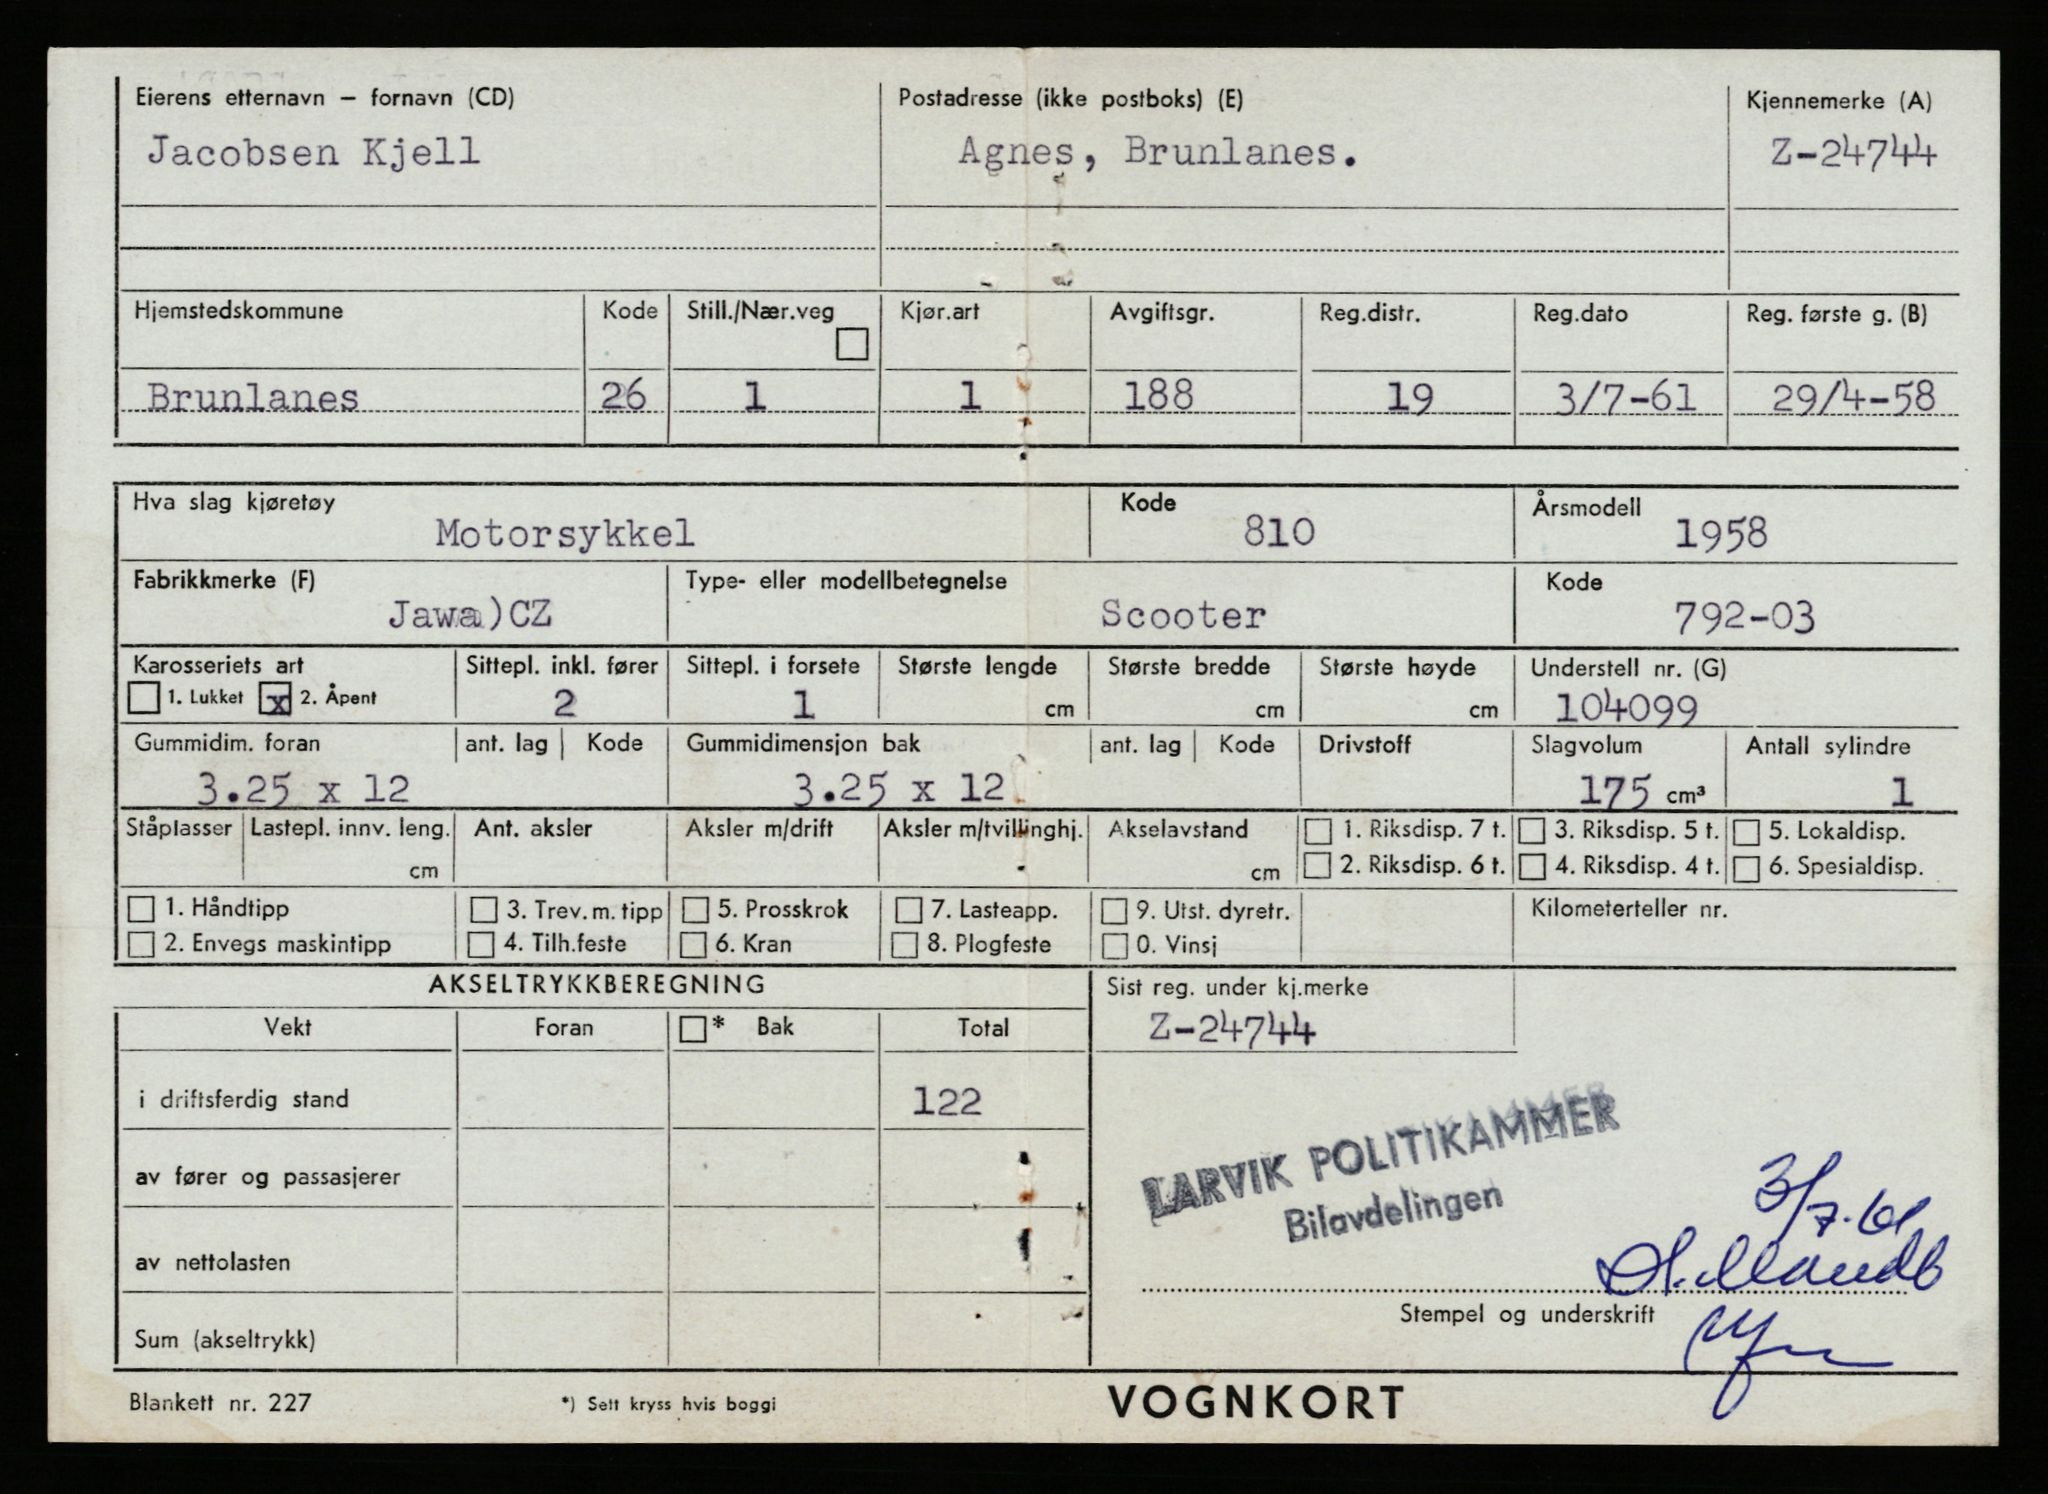 Eierens etternavn – fornavn (CD) Postadresse (ikke postboks) (E) Kjennemerke (A)
Jacobsen Kjell Agnes, Brunlanes. Z-24744
Hjemstedskommune Kode Still./Nær.veg Kjør.art Avgiftsgr. Reg.distr. Reg.dato Reg. første g. (B)
Brunlanes 26 1 1 188 19 3/7-61 29/4-58
Hva slag kjøretøy Kode Årsmodell
Motorsykkel 810 1958
Fabrikkmerke (F) Type- eller modellbetegnelse Kode
Jawa)CZ Scooter 792-03
Karosseriets art Sittepl. inkl. fører Sittepl. i forsete Største lengde Største bredde Største høyde Understell nr. (G)
1. Lukket x 2. Åpent 2 1 cm cm cm 104099
Gummidim. foran ant. lag Kode Gummidimensjon bak ant. lag Kode Drivstoff Slagvolum Antall sylindre
3.25 x 12 3.25 x 12 175 cm³ 1
Ståplasser Lastepl. innv. leng. Ant. aksler Aksler m/drift Aksler m/tvillinghj. Akselavstand 1. Riksdisp. 7 t. 3. Riksdisp. 5 t. 5. Lokaldisp.
cm cm 2. Riksdisp. 6 t. 4. Riksdisp. 4 t. 6. Spesialdisp.
1. Håndtipp 3. Trev. m. tipp 5. Prosskrok 7. Lasteapp. 9. Utst. dyretr. Kilometerteller nr.
2. Envegs maskintipp 4. Tilh.feste 6. Kran 8. Plogfeste 0. Vinsj
AKSELTRYKKBEREGNING Sist reg. under kj.merke
Vekt Foran * Bak Total Z-24744
i driftsferdig stand 122
LARVIK POLITIKAMMER
Bilavdelingen
av fører og passasjerer
3/7-61
av nettolasten
Stempel og underskrift
Sum (akseltrykk)
Blankett nr. 227 *) Sett kryss hvis boggi VOGNKORT